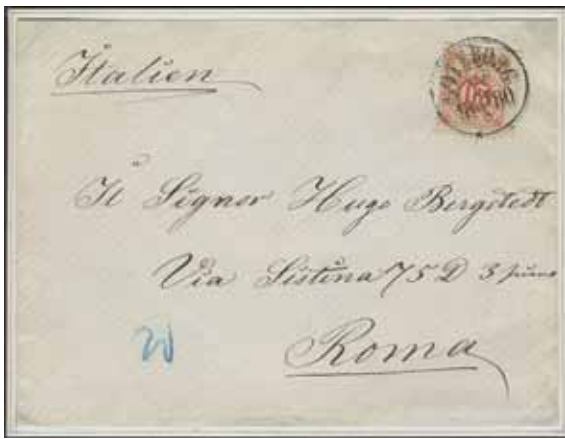 Italien
GÖTEBORG
Il Signor Hugo Bergstedt
Via Sistina 75 D 3 piano
20
Roma